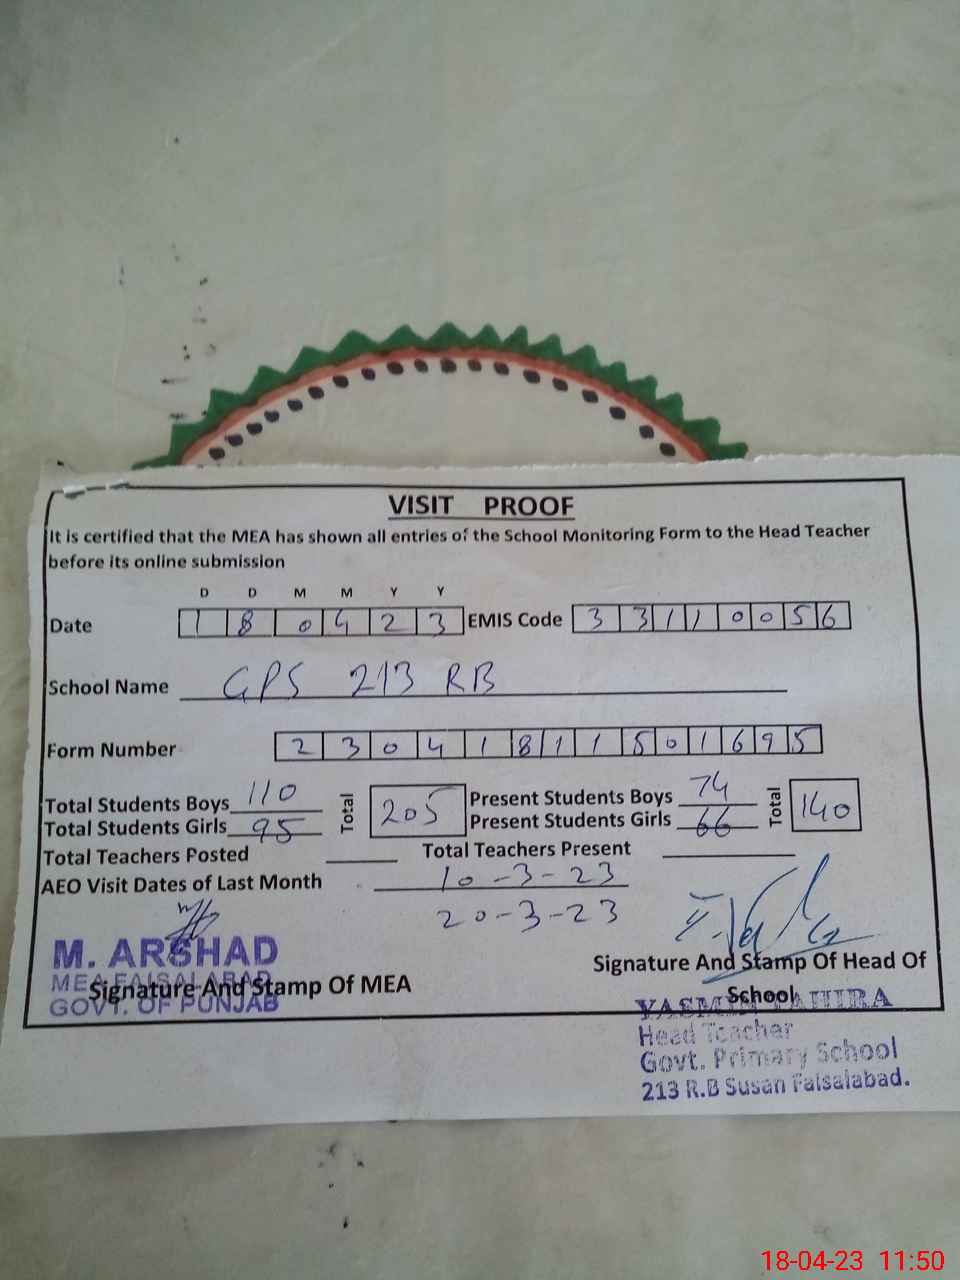 VISIT PROOF
It is certified that the MEA has shown all entries of the School Monitoring Form to the Head Teacher
before its online submission
D D M M Y Y
Date 1 8 0 4 2 3 EMIS Code 3 3 1 1 0 0 5 6
School Name GPS 213 RB
Form Number 2 3 0 4 1 8 1 1 5 0 1 6 9 5
Total Students Boys 110 Total 205 Present Students Boys 74 Total 140
Total Students Girls 95 Present Students Girls 66
Total Teachers Posted Total Teachers Present
AEO Visit Dates of Last Month 10-3-23
20-3-23
M. ARSHAD
MEA FAISALABAD
GOVT. OF PUNJAB
Signature And Stamp Of MEA
Signature And Stamp Of Head Of
School
YASMIN TAHIRA
Head Teacher
Govt. Primary School
213 R.B Susan Faisalabad.
18-04-23 11:50